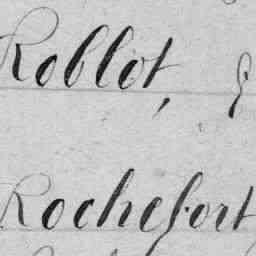 Roblot,
Rochefort